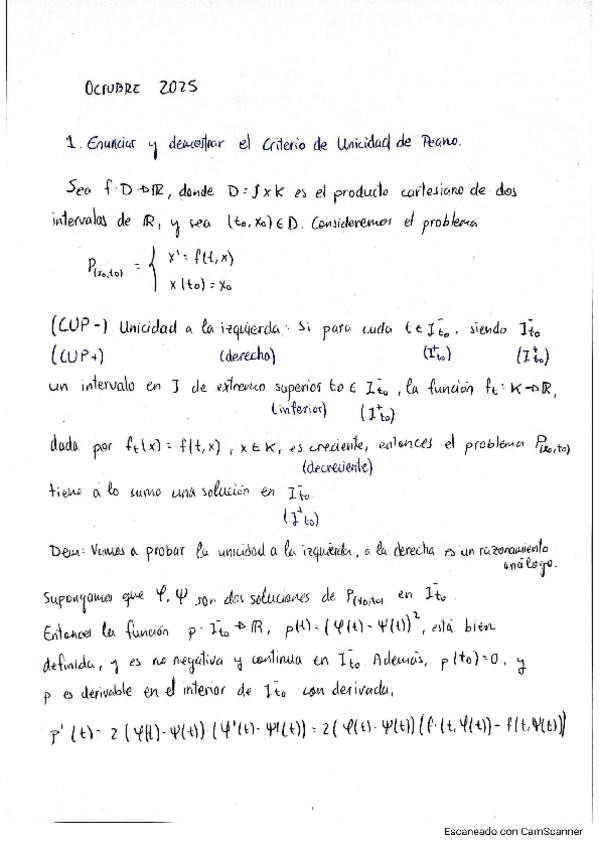 OCTUBRE 2025
1. Enunciar y demostrar el Criterio de Unicidad de Peano.
Sea f: D → ℝ, donde D = J x K es el producto cartesiano de dos
intervalos de ℝ, y sea (t₀, x₀) ∈ D. Consideremos el problema
P₍ₓ₀,ₜ₀₎ = { x' = f(t, x)
x(t₀) = x₀
(CUP-) Unicidad a la izquierda: Si para cada t ∈ I⁻ₜ₀, siendo I⁻ₜ₀
(CUP+) (derecha) (I⁺ₜ₀) (I⁺ₜ₀)
un intervalo en J de extremo superior t₀ ∈ I⁻ₜ₀, la función fₜ: K → ℝ,
(inferior) (I⁺ₜ₀)
dada por fₜ(x) = f(t, x), x ∈ K, es creciente, entonces el problema P₍ₓ₀,ₜ₀₎
(decreciente)
tiene a lo sumo una solución en I⁻ₜ₀.
(I⁺ₜ₀)
Dem: Vamos a probar la unicidad a la izquierda, a la derecha es un razonamiento
análogo.
Supongamos que φ, ψ son dos soluciones de P₍ₓ₀,ₜ₀₎ en I⁻ₜ₀.
Entonces la función p: I⁻ₜ₀ → ℝ, p(t) = (φ(t) - ψ(t))², está bien
definida, y es no negativa y continua en I⁻ₜ₀. Además, p(t₀) = 0, y
p es derivable en el interior de I⁻ₜ₀ con derivada,
p'(t) = 2(φ(t) - ψ(t))·(φ'(t) - ψ'(t)) = 2(φ(t) - ψ(t))(f(t, φ(t)) - f(t, ψ(t)))
Escaneado con CamScanner